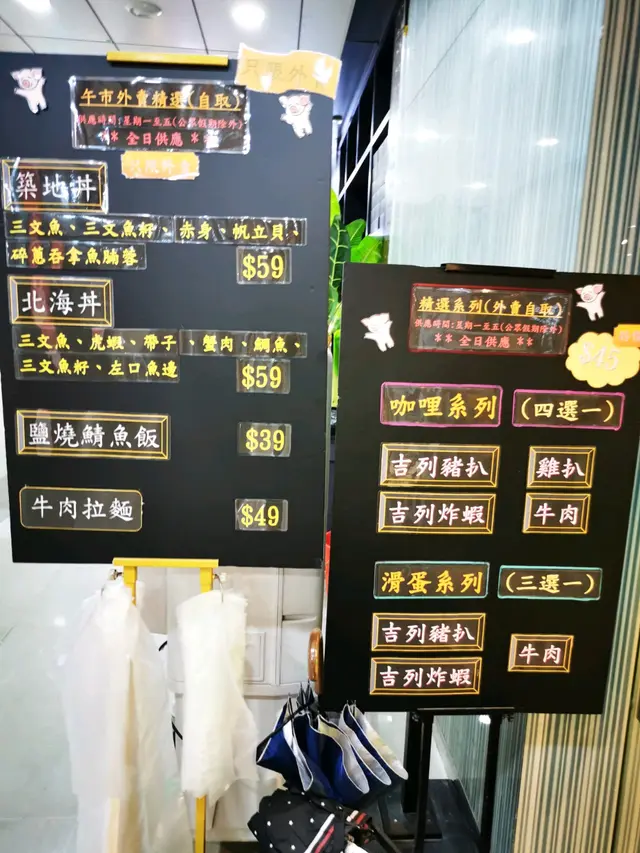 只限外
午市外賣精選(自取)
供應時間:星期一至五(公眾假期除外)
** 全日供應 **
築地丼
三文魚、三文魚籽、赤身、帆立貝、
碎蔥吞拿魚腩蓉
$59
北海丼
三文魚、虎蝦、帶子、蟹肉、鯛魚、
三文魚籽、左口魚邊
$59
鹽燒鯖魚飯
$39
牛肉拉麵
$49
精選系列(外賣自取)
供應時間:星期一至五(公眾假期除外)
** 全日供應 **
$45
咖哩系列
(四選一)
吉列豬扒
雞扒
吉列炸蝦
牛肉
滑蛋系列
(三選一)
吉列豬扒
牛肉
吉列炸蝦